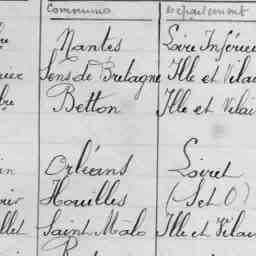 Communes Département
Nantes Loire Inférieu
Sens de Bretagne Ille et Vilai
Betton Ille et Vilai
Orléans Loiret
Houilles (S et O)
Saint Mâlo Ille et Vilai